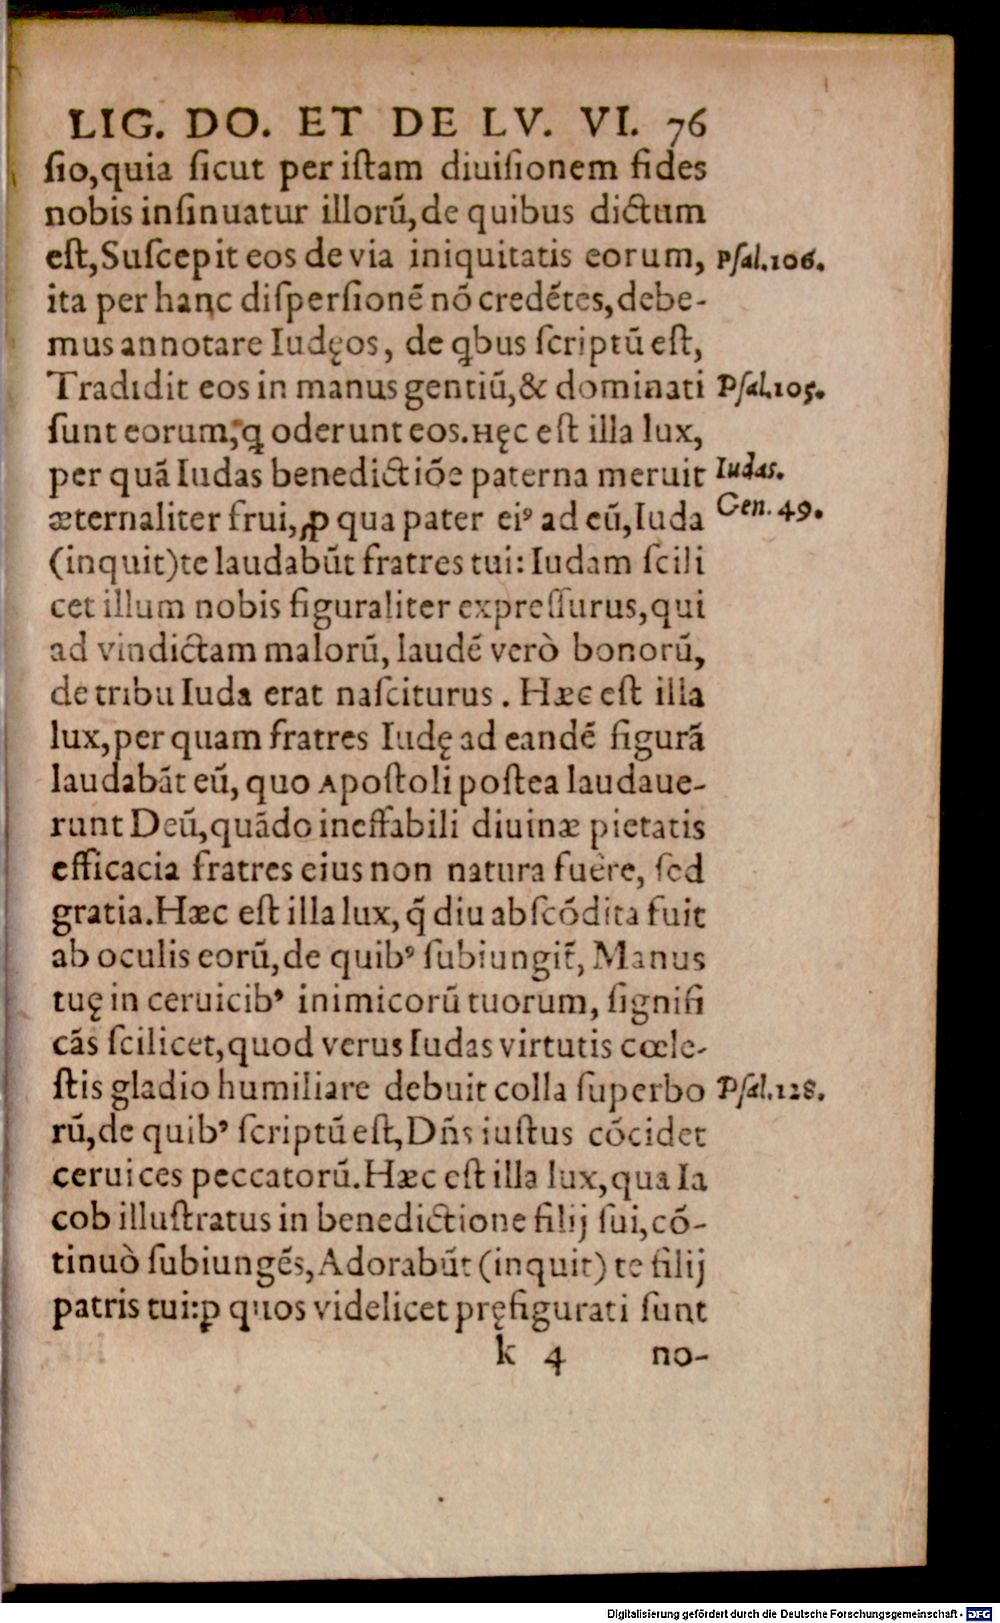 LIG. DO. ET DE LV. VI. 76
ſio,quia ſicut per iſtam diuiſionem fides
nobis inſinuatur illorũ,de quibus dictum
eſt,Suſcepit eos de via iniquitatis eorum, Pſal.106.
ita per hanc diſperſionẽ nõ credẽtes,debe-
mus annotare Iudęos, de ꝗbus ſcriptũ eſt,
Tradidit eos in manus gentiũ,& dominati Pſal.105.
ſunt eorum,ꝗ oderunt eos.Hęc eſt illa lux,
per quã Iudas benedictiõe paterna meruit Iudas.
æternaliter frui,ꝓ qua pater eiꝰ ad eũ,Iuda Gen. 49.
(inquit)te laudabũt fratres tui: Iudam ſcili
cet illum nobis figuraliter expreſſurus,qui
ad vindictam malorũ, laudẽ verò bonorũ,
de tribu Iuda erat naſciturus. Hæc eſt illa
lux,per quam fratres Iudę ad eandẽ figurã
laudabãt eũ, quo Apoſtoli poſtea laudaue-
runt Deũ,quãdo ineffabili diuinæ pietatis
efficacia fratres eius non natura fuêre, ſed
gratia.Hæc eſt illa lux, q̃ diu abſcõdita fuit
ab oculis eorũ,de quibꝰ ſubiungit̃, Manus
tuę in ceruicibꝰ inimicorũ tuorum, ſignifi
cãs ſcilicet,quod verus Iudas virtutis cœle-
ſtis gladio humiliare debuit colla ſuperbo Pſal.128.
rũ,de quibꝰ ſcriptũ eſt,Dñs iuſtus cõcidet
ceruices peccatorũ.Hæc eſt illa lux,qua Ia
cob illuſtratus in benedictione filij ſui,cõ-
tinuò ſubiungẽs,Adorabũt (inquit) te filij
patris tui:ꝑ quos videlicet pręfigurati ſunt
k 4 no-
Digitalisierung gefördert durch die Deutsche Forschungsgemeinschaft - DFG